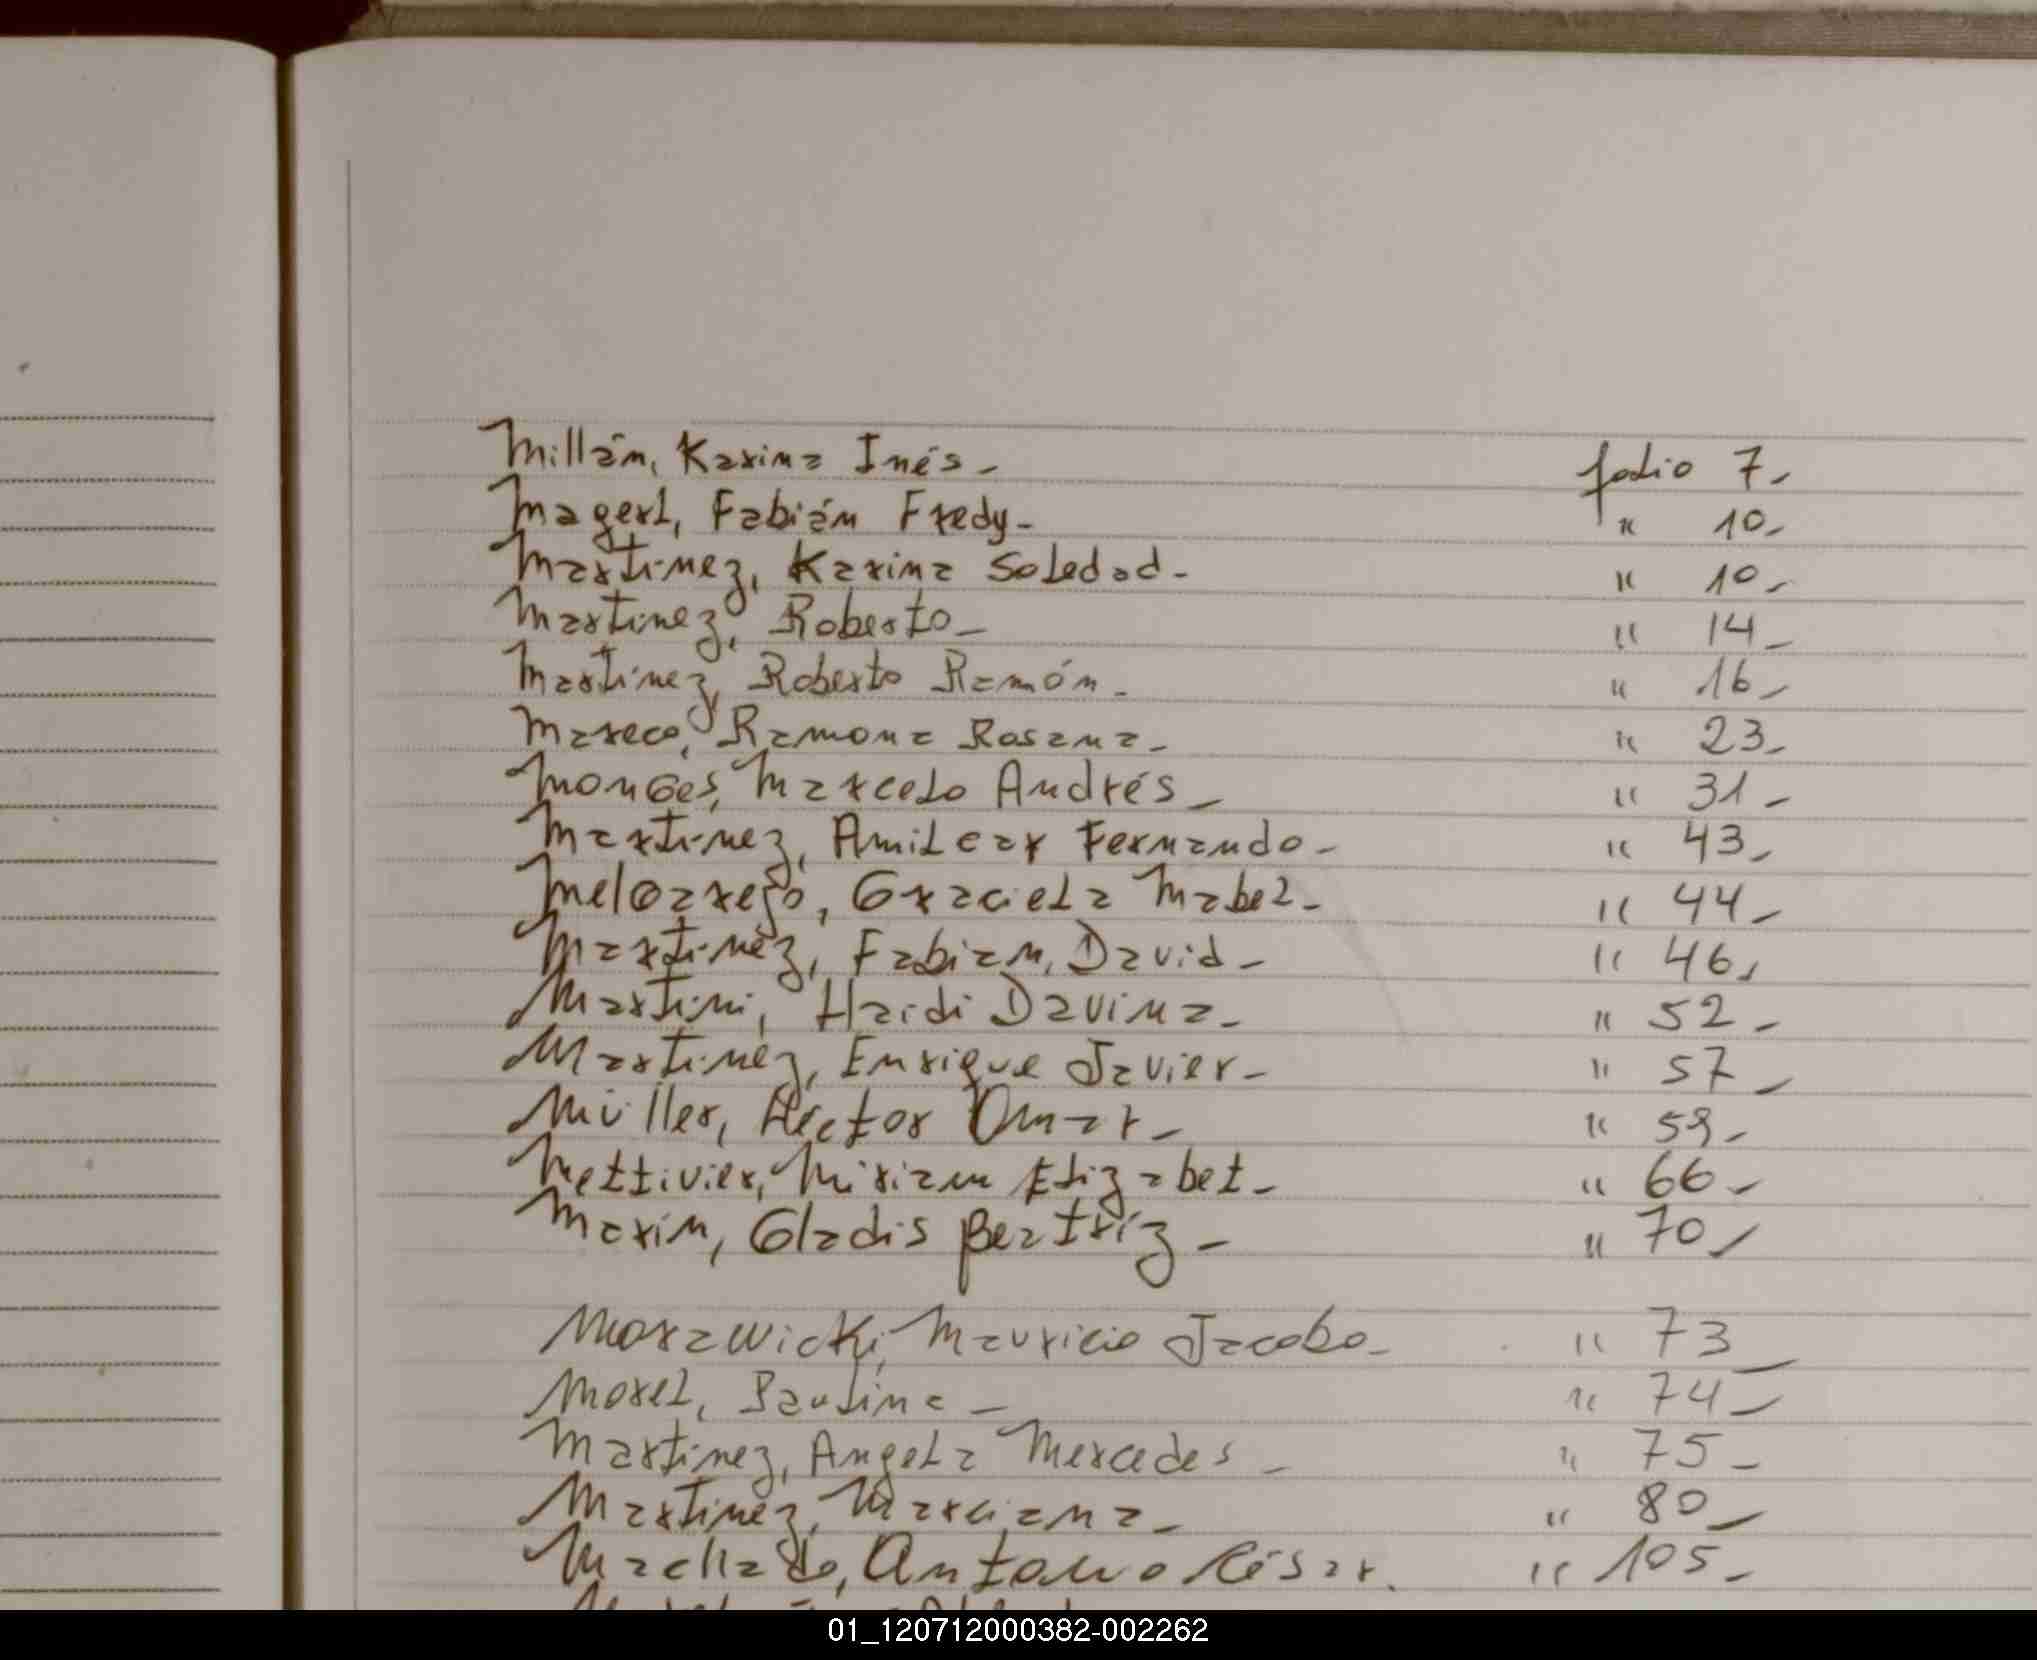 Millán, Karina Inés - folio 7 -
Magerl, Fabián Fredy - " 10 -
Martinez, Karina Soledad - " 10 -
Martinez, Roberto - " 14 -
Martinez, Roberto Ramón - " 16 -
Mareco, Ramona Rosana - " 23 -
Monges, Marcelo Andrés - " 31 -
Martinez, Amilcar Fernando - " 43 -
Melgarejo, Graciela Mabel - " 44 -
Martinez, Fabian, David - " 46 -
Martini, Haidi Davina - " 52 -
Martinez, Enrique Javier - " 57 -
Müller, Héctor Omar - " 59 -
Mettivier, Miriam Elizabet - " 66 -
Marin, Gladis Beatríz - " 70 -
Morawicki, Mauricio Jacobo - " 73 -
Morel, Paulina - " 74 -
Martinez, Angela Mercedes - " 75 -
Martinez, Marciana - " 80 -
Machado, Antonio César. " 105 -
01_120712000382-002262